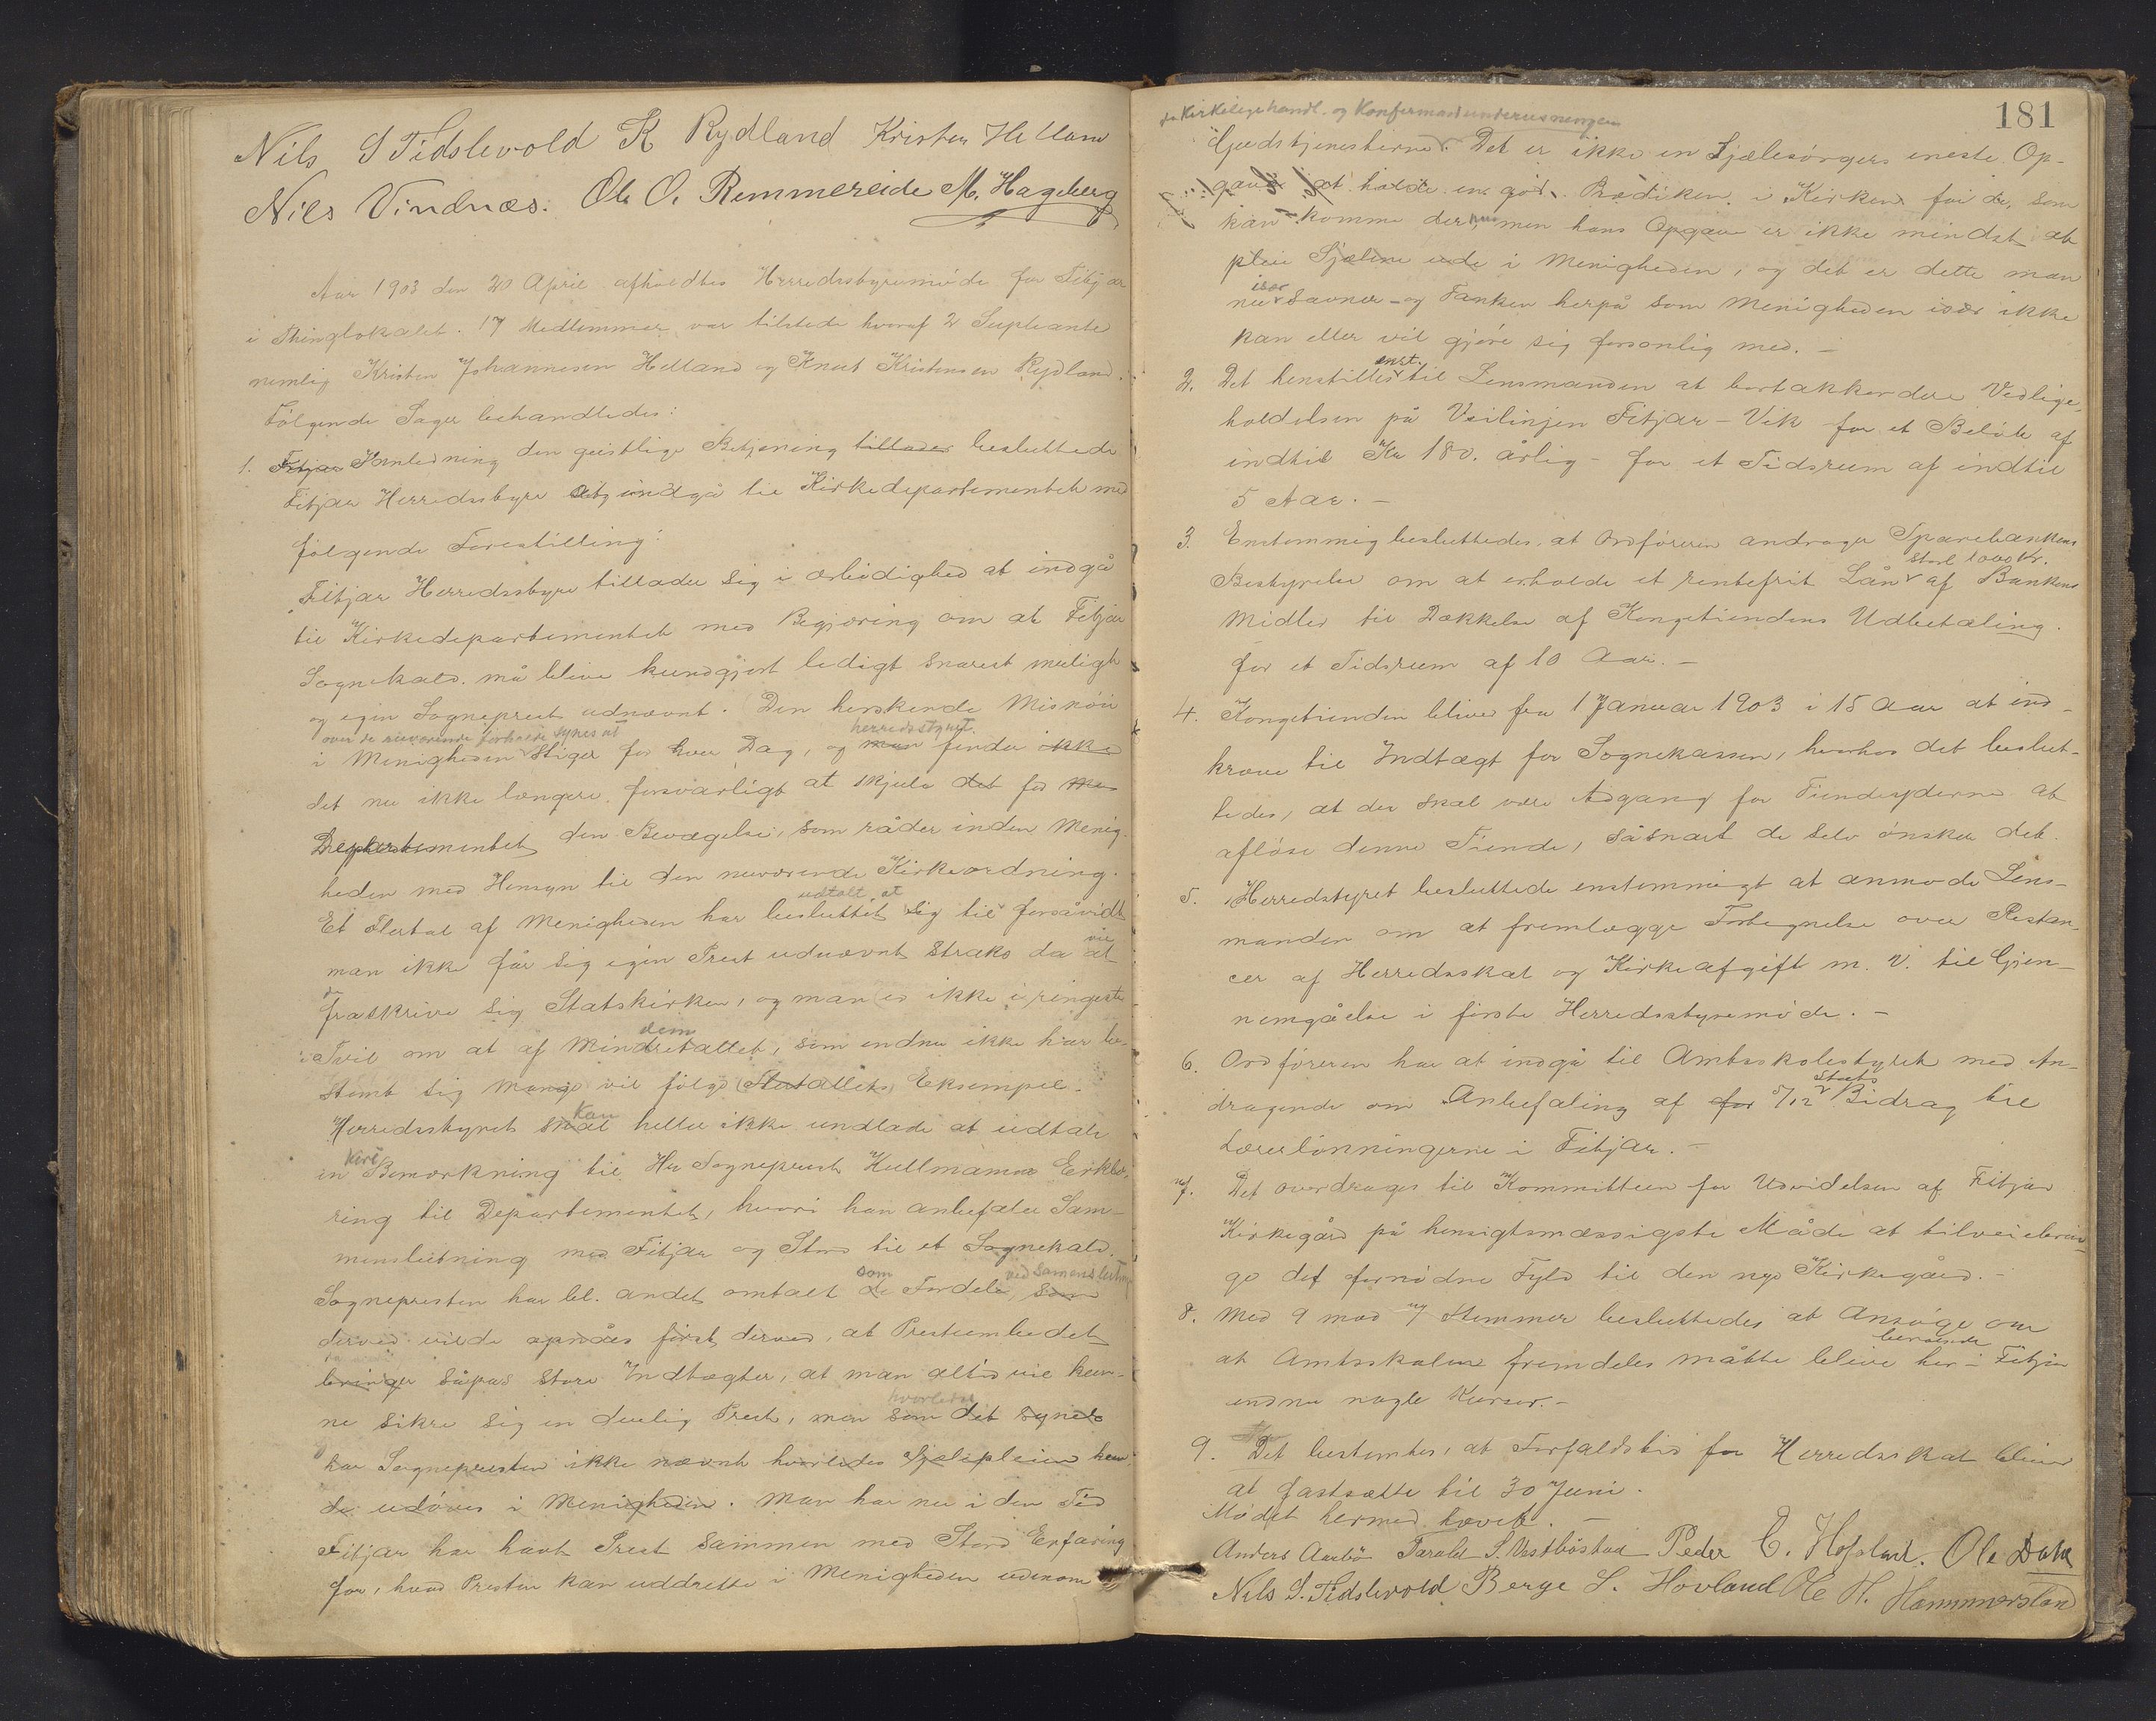 Nils S Tidslevold K Rydland Kristen Helland
Nils Vindnæs. Ole O. Remmereide M. Hageberg
Aar 1903 den 20 April afholdtes Herredsstyremøde for Fitjar
i Thinglokalet. 17 Medlemmer var tilstede hvoraf 2 Supleante
nemlig Kristen Johannesen Helland og Knut Kristensen Rydland.
Følgende Sager behandledes:
1. Fitjar I anledning den geistlige Betjening tillader besluttede
Fitjar Herredsstyre at indgå til Kirkedepartementet med
følgende Forestilling:
Fitjar Herredsstyre tillader sig i ærbødighed at indgå
til Kirkedepartementet med Begjæring om at Fitjar
Sognekald må blive kundgjort ledigt snarest muligt
og egen Sogneprest udnævnt. Den herskende Misnøie
over de nuværende forholde synes at herredsstyret
i Menigheden stiger for hver Dag, og man finder ikke
det nu ikke længere forsvarligt at skjule det for
Departementet den Bevægelse, som råder inden Menig-
heden med Hensyn til den nuværende Kirkeordning.
udtalt at
Et Flertal af Menigheden har besluttet sig til forsåvidt
man ikke får sig egen Prest udnævnt straks da at vil
de
fraskrive sig Statskirken, og man er ikke i ringeste
dem
Tvil om at af Mindretallet, som endnu ikke har be-
stemt sig mange vil følge Flertallets Eksempel.
kan
Herredsstyret skal heller ikke undlade at udtale
en Bemærkning til Hr Sogneprest Kullmanns Erklæ-
ring til Departementet, hvori han anbefaler Sam-
menslutning med Fitjar og Stord til et Sognekald.
som ved samenslutning
Sognepresten har bl. andet omtalt de Fordele, som
derved vilde opnåes først derved, at Prestembedet
bringer såpas store Indtægter, at man altid vil kun-
hvorledes
ne sikre sig en duelig Prest, men som det synes
har Sognepresten ikke nævnt hvorledes Sjælepleien kun-
de udøves i Menigheden. Man har nu i den Tid
Fitjar har havt Prest sammen med Stord Erfaring
for, hvad Presten kan uddrette i Menigheden udenom
181
de Kirkelige handl. og Konfirmandunderisningen
Gudstjenesterne. Det er ikke en Sjælesørgers eneste Op-
gave at holde en god Prædiken i Kirken for de, som
kan komme der, men hans Opgave er ikke mindst at
pleie Sjælene ude i Menigheden, og det er dette man
især
nu savner – og Tanken herpå som Menigheden især ikke
kan eller vil gjøre sig forsonlig med. –
enst.
2. Det henstilles til Lensmanden at bortakkordere Vedlige-
holdelsen på Veilinjen Fitjar – Vik for et Beløb af
indtil Kr 180. årlig – for et Tidsrum af indtil
5 Aar. –
3. Enstemmig besluttedes at Ordføreren andrager Sparebankens
stort 1000 Kr.
Bestyrelse om at erholde et rentefrit Lån af Bankens
Midler til Dækkelse af Kongetiendens Udbetaling
for et Tidsrum af 10 Aar. –
4. Kongetienden bliver fra 1 Januar 1903 i 15 Aar at ind-
kræve til Indtægt for Sognekassen, hvorhos det beslut-
tedes, at der skal være Adgang for Tiendeyderne at
afløse denne Tiende, såsnart de selv ønsker det.
5. Herredstyret besluttede enstemmigt at anmode Lens-
manden om at fremlægge Fortegnelse over Restan-
cer af Herredsskat og Kirkeafgift m. v. til Gjen-
nemgåelse i første Herredsstyremøde. –
6. Ordføreren har at indgå til Amtsskolestyret med An-
Stats
dragende om Anbefaling af for 5/12 Bidrag til
Lærerlønningerne i Fitjar. –
7. Det overdrages til Kommitteen for Udvidelsen af Fitjar
Kirkegård på hensigtsmæssigste Måde at tilveiebrin-
ge det fornødne Fyld til den nye Kirkegård. –
8. Med 9 mod 7 Stemmer besluttedes at Ansøge om
beroende
at Amtsskolen fremdeles måtte blive her i Fitjar
endnu nogle Kurser. –
9. Det bestemtes, at Forfaldstid for Herredsskat bliver
at fastsætte til 30 Juni.
Mødet hermed hævet. –
Anders Aarbø Tarald S. Vestbøstad Peder C. Hofland. Ole Dale
Nils S. Tidslevold Berge S. Hovland Ole H. Hammersland